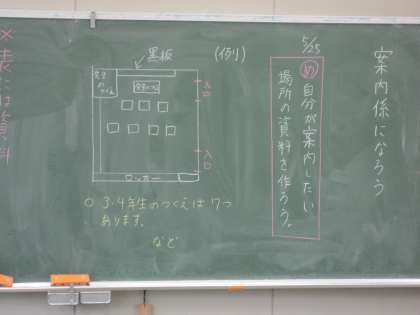 案内係になろう
5/25
め 自分が案内したい
場所の資料を作ろう。
(例)
黒板
先生
入口
入口
ロッカー
○ 3・4年生のつくえは7つ
あります。
など
※表には資料